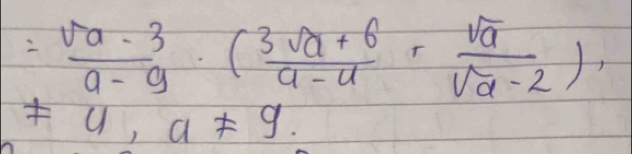 = \frac{√a - 3}{a - 9} · ( \frac{3√a + 6}{a - 4} + \frac{√a}{√a - 2} ),
≠ 4, a ≠ 9.